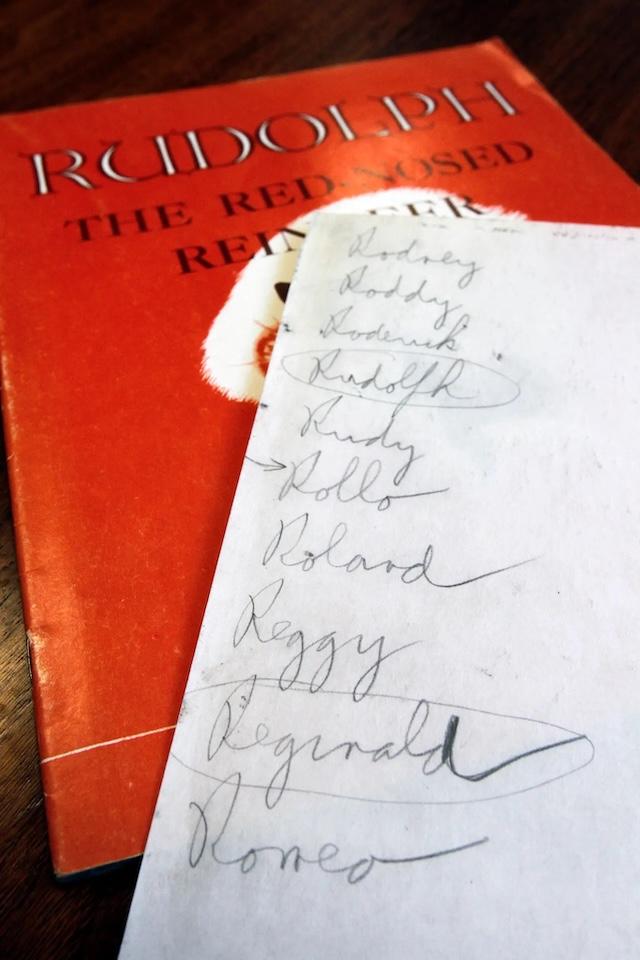 RUDOLPH
THE RED-NOSED
REINDEER
Rodney
Roddy
Roderick
Rudolph
Rudy
Rollo
Roland
Reggy
Reginald
Romeo